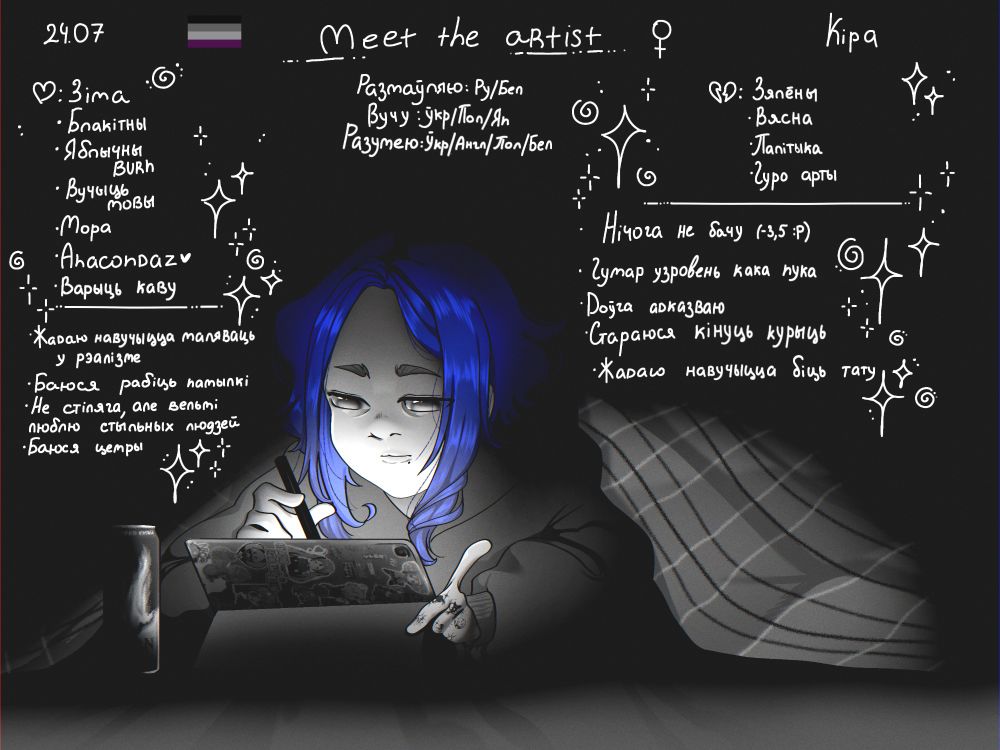 24.07
Meet the artist ♀
Кіра
Размаўляю: Ру/Бел
Вучу : Ўкр/Пол/Яп
Разумею: Ўкр/Англ/Пол/Бел
♡: Зіма
· Блакітны
· Яблычны
BURN
· Вучыць
мовы
· Мора
· Anacondaz ♥
· Варыць каву
· Жадаю навучыцца маляваць
у рэалізме
· Баюся рабіць памылкі
· Не стіляга, але вельмі
люблю стыльных людзей
· Баюся цемры
💔: Зялёны
· Вясна
· Палітыка
· Гуро арты
· Нічога не бачу (-3,5 :P)
· Гумар узровень кака пука
· Доўга адказваю
· Стараюся кінуць курыць
· Жадаю навучыцца біць тату